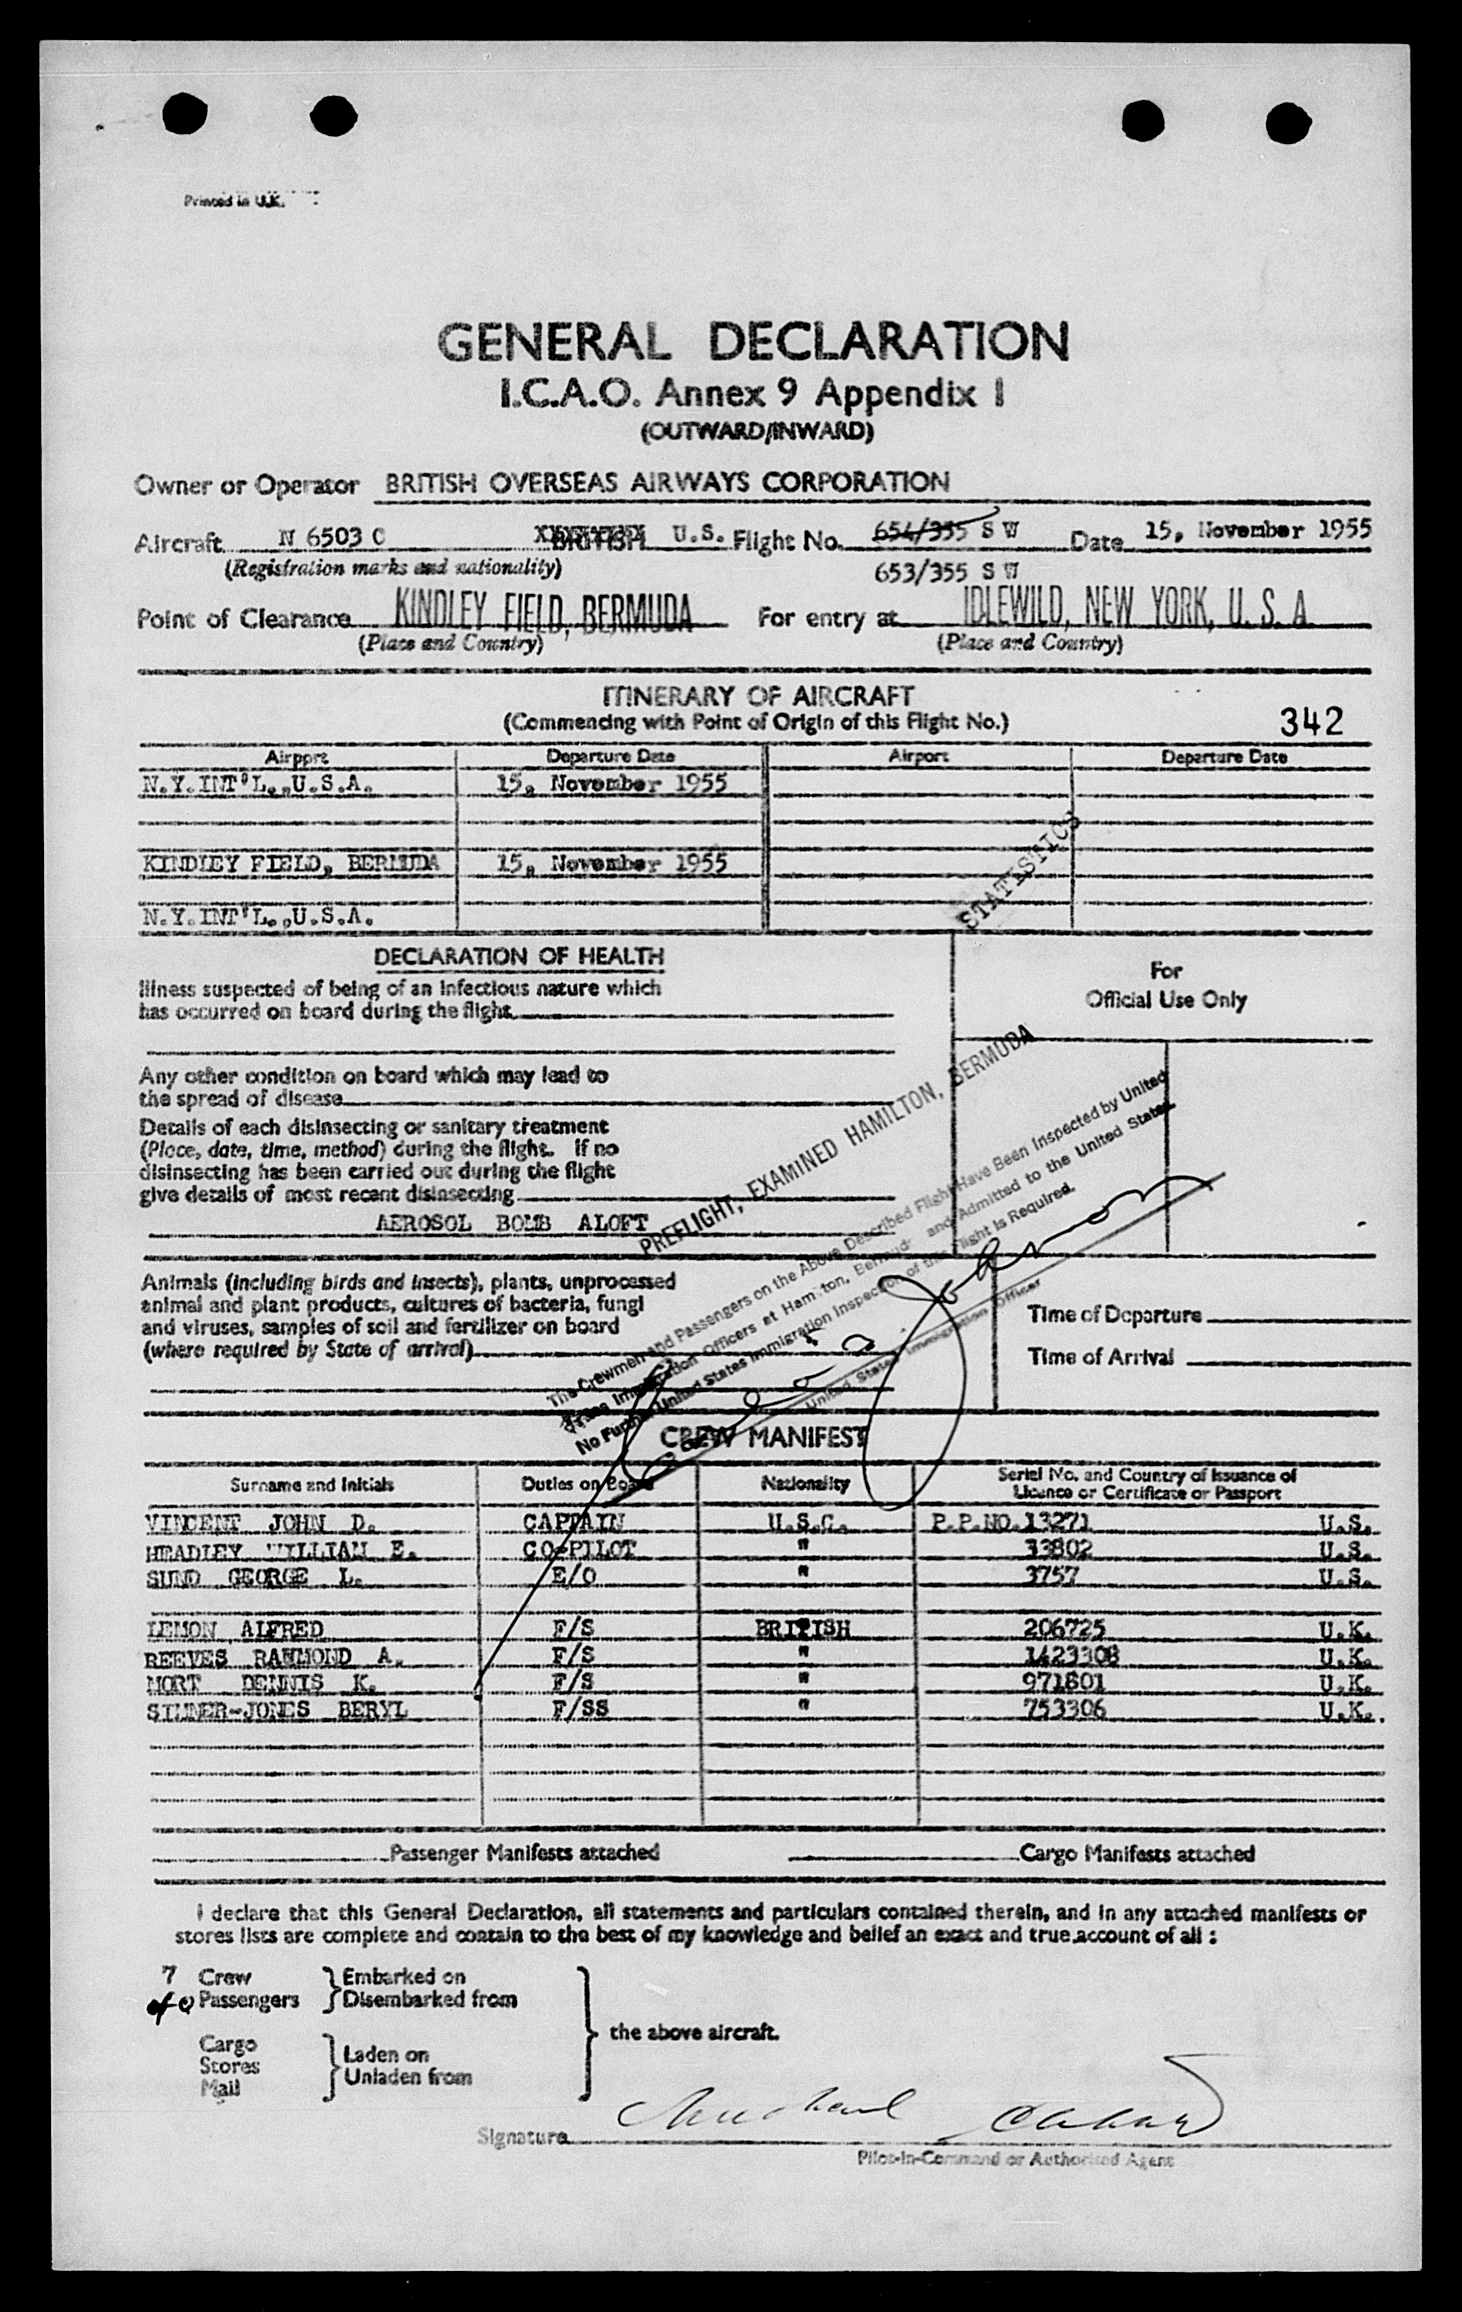 Printed in U.K.
GENERAL DECLARATION
I.C.A.O. Annex 9 Appendix I
(OUTWARD/INWARD)
Owner or Operator BRITISH OVERSEAS AIRWAYS CORPORATION
Aircraft N 6503 C BRITISH U.S. Flight No. 654/355 S W Date 15, November 1955
(Registration marks and nationality) 653/355 S W
Point of Clearance KINDLEY FIELD, BERMUDA For entry at IDLEWILD, NEW YORK, U. S. A.
(Place and Country) (Place and Country)
ITINERARY OF AIRCRAFT
(Commencing with Point of Origin of this Flight No.) 342
Airport Departure Date Airport Departure Date
N.Y.INT'L.,U.S.A. 15, November 1955
KINDLEY FIELD, BERMUDA 15, November 1955
N.Y.INT'L.,U.S.A.
STATISTICS
DECLARATION OF HEALTH
For
Official Use Only
Illness suspected of being of an infectious nature which
has occurred on board during the flight
Any other condition on board which may lead to
the spread of disease
Details of each disinsecting or sanitary treatment
(Place, date, time, method) during the flight. If no
disinsecting has been carried out during the flight
give details of most recent disinsecting
AEROSOL BOMB ALOFT
PREFLIGHT, EXAMINED HAMILTON, BERMUDA
The Crewmen and Passengers on the Above Described Flight Have Been Inspected by United
States Immigration Officers at Hamilton, Bermuda and Admitted to the United States.
No Further United States Immigration Inspection of this Flight is Required.
United States Immigration Officer
Animals (including birds and insects), plants, unprocessed
animal and plant products, cultures of bacteria, fungi
and viruses, samples of soil and fertilizer on board
(where required by State of arrival)
Time of Departure
Time of Arrival
CREW MANIFEST
Surname and Initials Duties on Board Nationality Serial No. and Country of Issuance of
Licence or Certificate or Passport
VINCENT JOHN D. CAPTAIN U.S.C. P.P.NO.13271 U.S.
HEADLEY WILLIAM E. CO-PILOT " 33802 U.S.
SUND GEORGE L. E/O " 3757 U.S.
LEMON ALFRED F/S BRITISH 206725 U.K.
REEVES RAYMOND A. F/S " 1423308 U.K.
MORT DENNIS K. F/S " 971801 U.K.
SILMER-JONES BERYL F/SS " 753306 U.K.
Passenger Manifests attached Cargo Manifests attached
I declare that this General Declaration, all statements and particulars contained therein, and in any attached manifests or
stores lists are complete and contain to the best of my knowledge and belief an exact and true account of all :
7 Crew } Embarked on
40 Passengers } Disembarked from
the above aircraft.
Cargo
Stores } Laden on
Mail } Unladen from
Signature
Pilot-in-Command or Authorised Agent